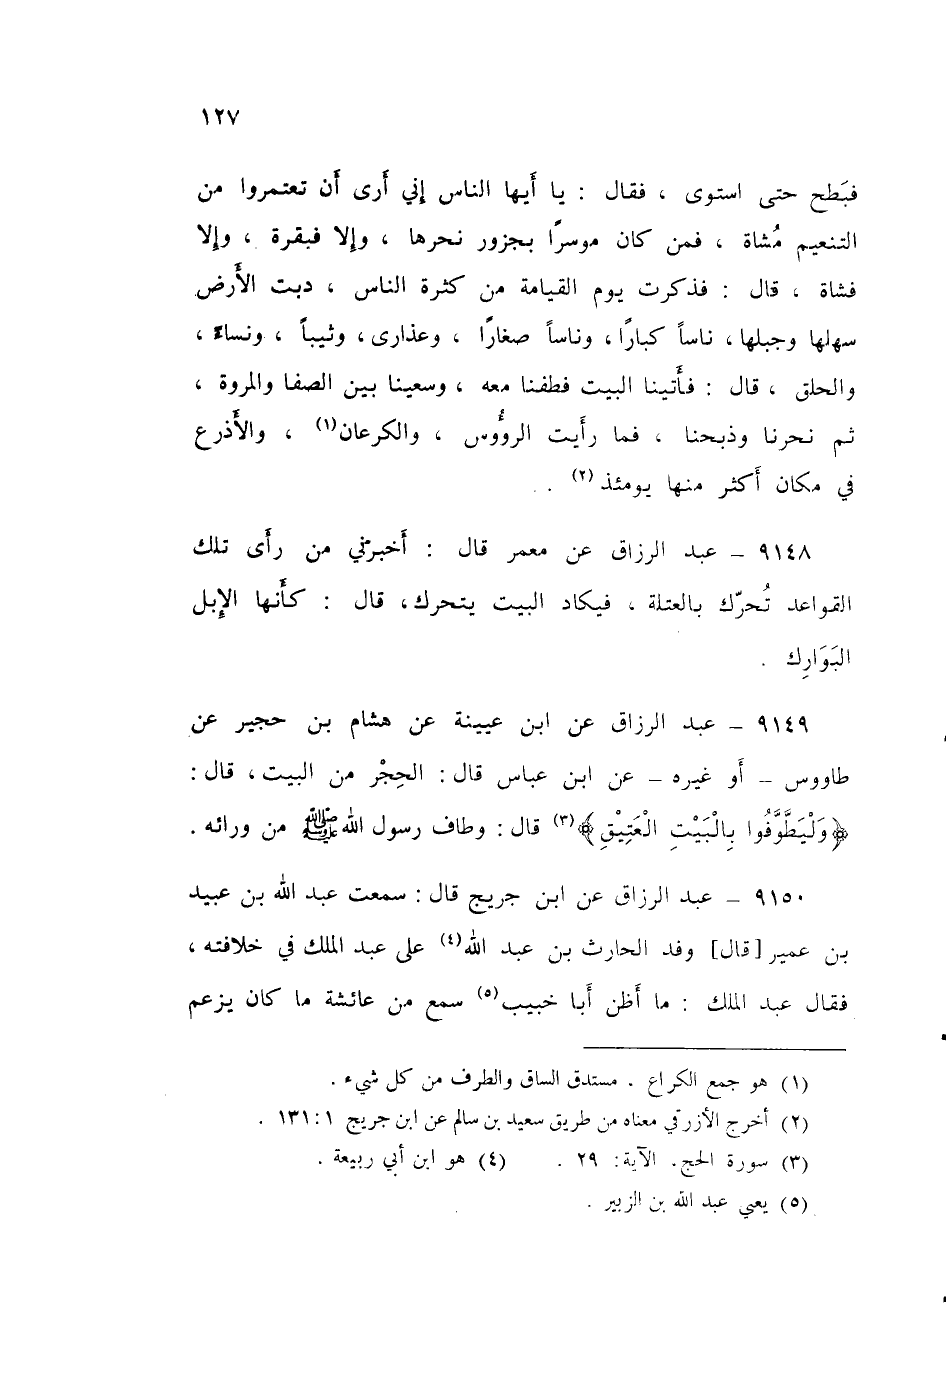 ١٢٧
فبَطح حتى استوى ، فقال : يا أَيها الناس إِني أَرى أَن تعتمروا من
التنعيم مُشاة ، فمن كان موسرًا بجزور نحرها ، وإِلا فبقرة ، وإِلا
فشاة ، قال : فذكرت يوم القيامة من كثرة الناس ، دبت الأَرض
سهلها وجبلها ، ناساً كبارًا ، وناساً صغارًا ، وعذارى ، وثيباً ، ونساءً ،
والحلق ، قال : فأَتينا البيت فطفنا معه ، وسعينا بين الصفا والمروة ،
ثم نحرنا وذبحنا ، فما رأَيت الروُّوس ، والكرعان(١) ، والأَذرع
في مكان أَكثر منها يومئذ(٢) .
٩١٤٨ – عبد الرزاق عن معمر قال : أَخبرني من رأَى تلك
القواعد تُحرّك بالعتلة ، فيكاد البيت يتحرك، قال : كأَنها الإِبل
البَوَارِك .
٩١٤٩ – عبد الرزاق عن ابن عيينة عن هشام بن حجير عن
طاووس – أَو غيره – عن ابن عباس قال : الحِجْر من البيت ، قال :
﴿وَلْيَطَّوَّفُوا بِالْبَيْتِ الْعَتِيْقِ﴾(٣) قال : وطاف رسول الله ﷺ من ورائه .
٩١٥٠ – عبد الرزاق عن ابن جريج قال : سمعت عبد الله بن عبيد
بن عمير [قال] وفد الحارث بن عبد الله(٤) على عبد الملك في خلافته ،
فقال عبد الملك : ما أَظن أَبا خبيب(٥) سمع من عائشة ما كان يزعم
(١) هو جمع الكراع . مستدق الساق والطرف من كل شيء .
(٢) أخرج الأزرقي معناه من طريق سعيد بن سالم عن ابن جريج ١ : ١٣١ .
(٣) سورة الحج. الآية : ٢٩ . (٤) هو ابن أبي ربيعة .
(٥) يعني عبد الله بن الزبير .